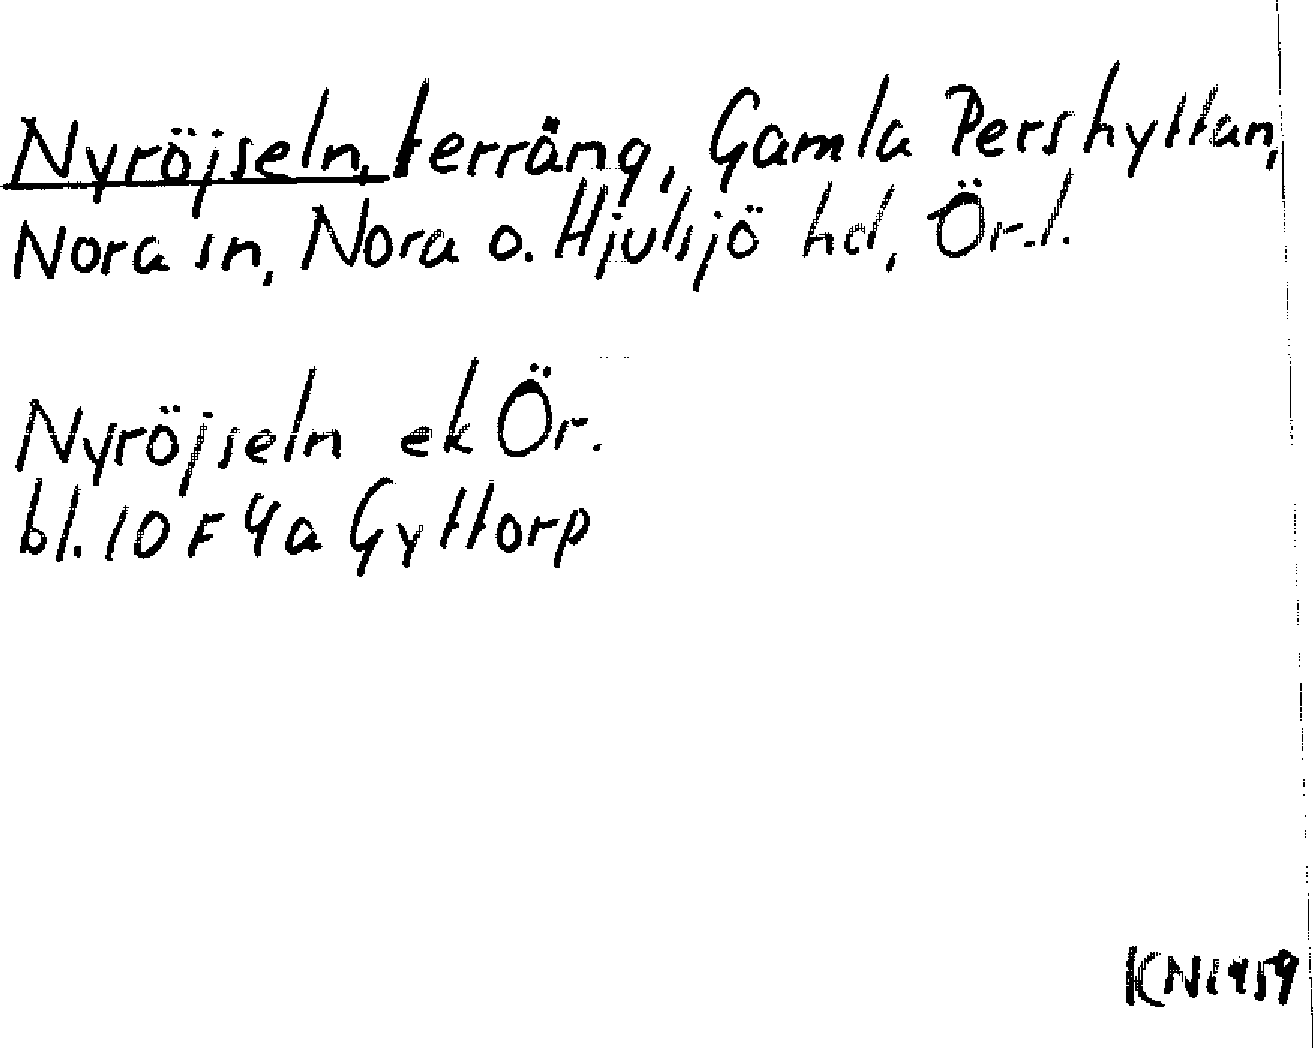 Nyröjseln, terräng, Gamla Pershyttan,
Nora sn, Nora o. Hjulsjö hd, Ör.l.
Nyröjseln ek Ör.
bl. 10 F 4a Gyttorp
KN 1959